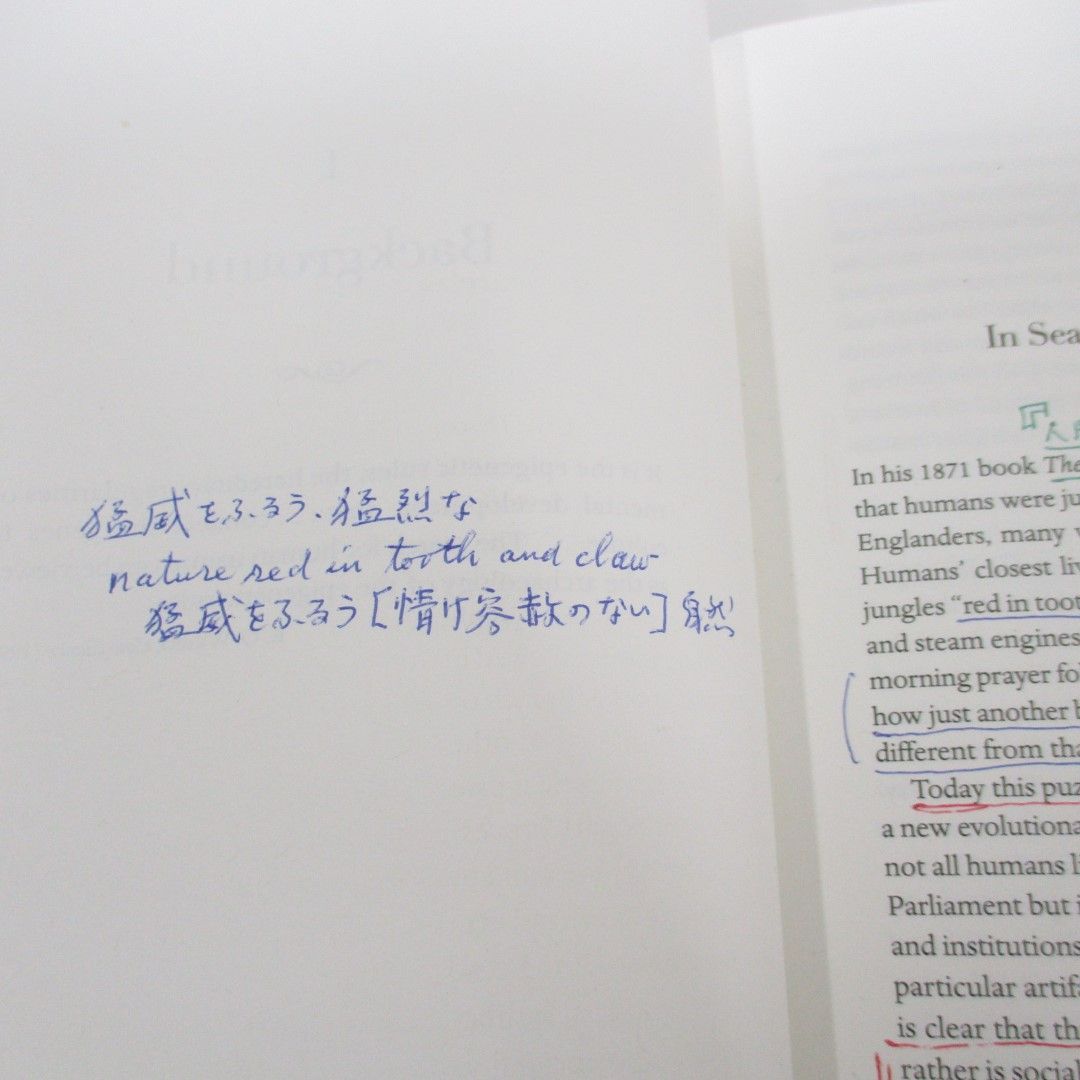 猛威をふるう、猛烈な
nature red in tooth and claw
猛威をふるう[情け容赦のない]自然
Background
In Sea
『人
In his 1871 book The
that humans were ju
Englanders, many
Humans' closest liv
jungles "red in toot
and steam engines
morning prayer fo
how just another b
different from tha
Today this puz
a new evolutiona
not all humans li
Parliament but i
and institutions
particular artifa
is clear that th
rather is social